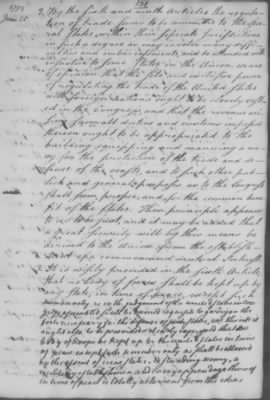 131
1778
June 25
2. By the sixth and ninth Articles the regula-
tion of trade seems to be committed to the seve-
ral States within their separate jurisdictions
in such a degree as may involve many diffi-
culties and embarrassments, and be attended with
injustice to some States in the Union, we are
of opinion that the sole and exclusive power
of regulating the trade of the United States
with foreign nations ought to be clearly vest-
ed in the Congress, and that the revenue ari-
sing from all duties and customs imposed
thereon ought to be appropriated to the
building equipping and manning a na-
vy for the protection of the trade and de-
fence of the coasts, and to such other pub-
lick and general purposes as to the Congress
shall seem proper, and for the common bene-
fit of the States. This principle appears
to us to be just, and it may be added that
a great security will by this means be
derived to the Union from the establish-
ment of a common and mutual Interest.
3. It is wisely provided in the sixth Article
that no body of forces shall be kept up by
any State, in time of peace, except such
number only as in the judgment of the united States in con-
gress assembled shall be deemed requisite to garrison the
forts necessary for the defence of such State, we think it
ought also to be provided and clearly expressed that no
body of troops be kept up by the united States in time
of peace except such number only as shall be allowed
by the assent of nine States. A standing army, a
military establishment and every appendage thereof
in time of peace is totally abhorrent from the ideas